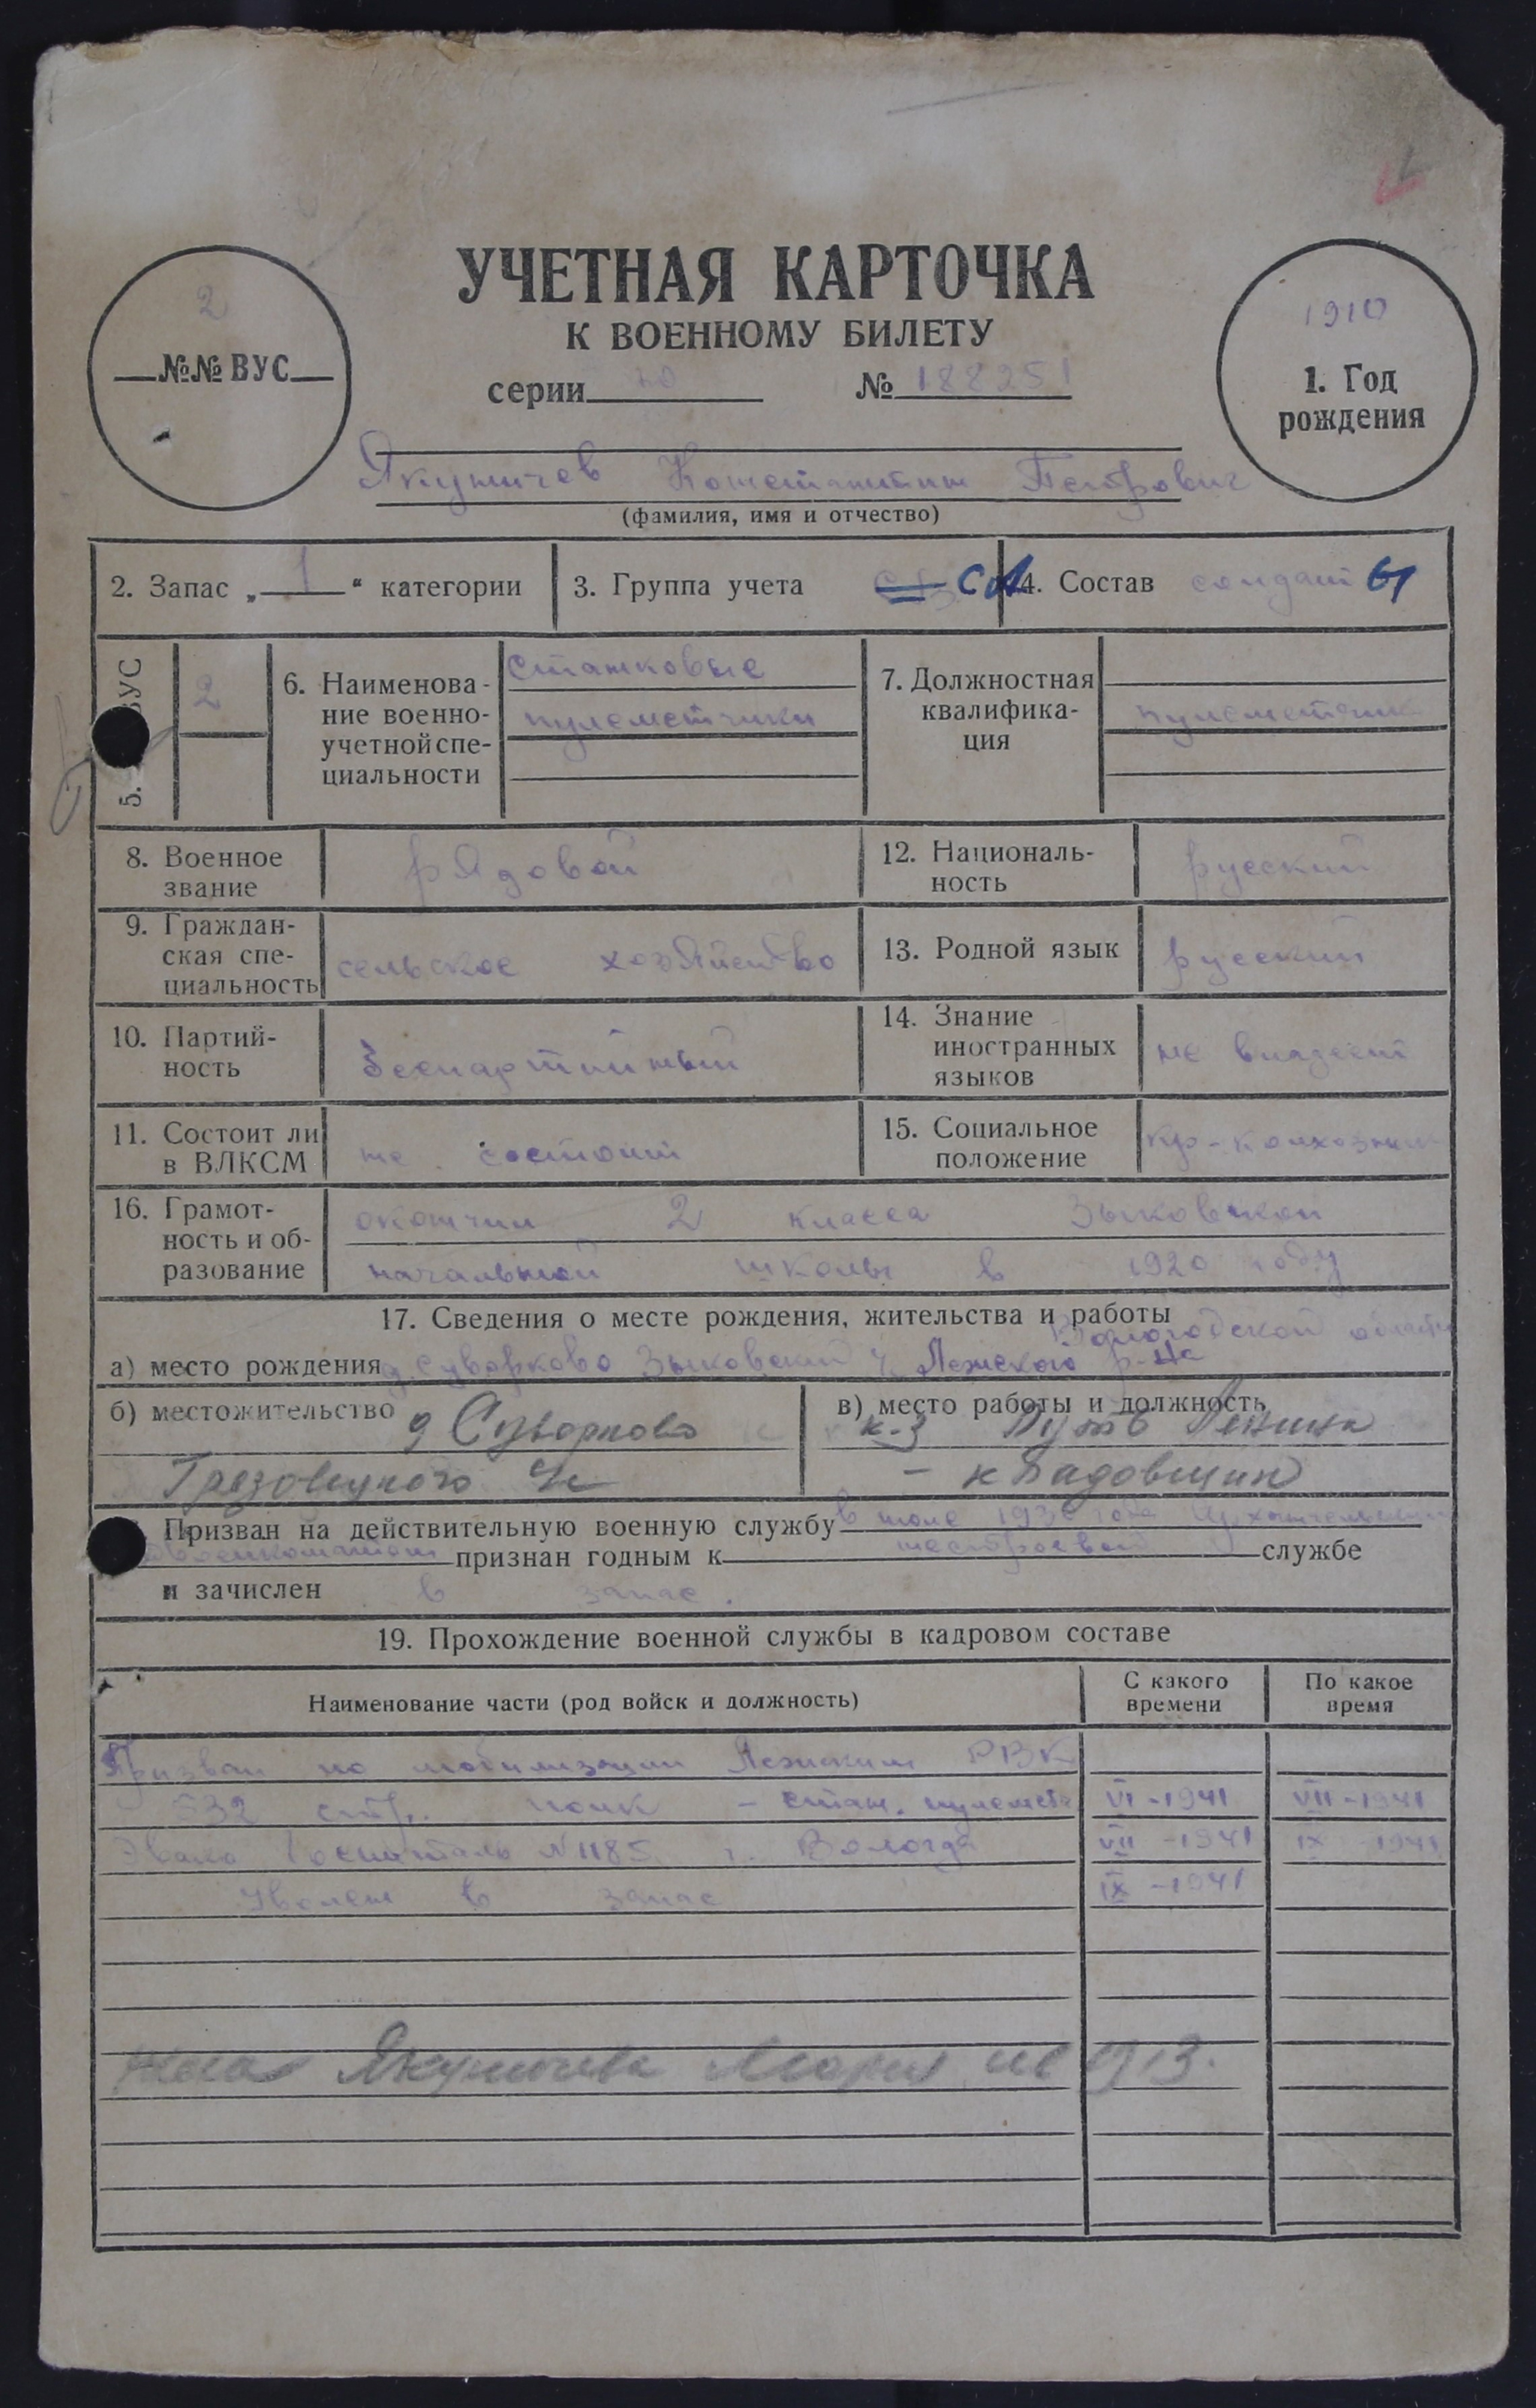 2
№№ ВУС
УЧЕТНАЯ КАРТОЧКА
К ВОЕННОМУ БИЛЕТУ
серии № 188251
1910
1. Год
рождения
Якуничев Константин Петрович
(фамилия, имя и отчество)
2. Запас „ 1 “ категории
3. Группа учета СА
4. Состав солдат
5. ВУС 2
6. Наименова-
ние военно-
учетной спе-
циальности
Станковые
пулеметчики
7. Должностная
квалифика-
ция
пулеметчик
8. Военное
звание
рядовой
12. Националь-
ность
русский
9. Граждан-
ская спе-
циальность
сельское хозяйство
13. Родной язык
русский
10. Партий-
ность
беспартийный
14. Знание
иностранных
языков
не владеет
11. Состоит ли
в ВЛКСМ
не состоит
15. Социальное
положение
кр-колхозник
16. Грамот-
ность и об-
разование
окончил 2 класса Зыковской
начальной школы в 1920 году
17. Сведения о месте рождения, жительства и работы
Вологодской области
а) место рождения д. Суворково Зыковский Лежского р-на
б) местожительство д Суворково
Грязовецкого
в) место работы и должность
к-з Путь Ленина
- кладовщик
Призван на действительную военную службу в
военкоматом признан годным к нестроевой службе
и зачислен в запас.
19. Прохождение военной службы в кадровом составе
Наименование части (род войск и должность)
С какого
времени
По какое
время
Призван по мобилизации Лежским РВК
532 стр. полк - стан. пулемет VI-1941 VII-1941
Эвако госпиталь N 1185 г. Вологда VII-1941 IX-1941
Уволен в запас IX-1941
жена Якуничева Мария 1913.